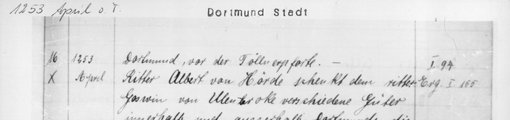 1253 April o. T.
Dortmund Stadt
16 1253 Dortmund, vor der Töllnerpforte. — I. 94
X April Ritter Albert von Hörde schenkt dem ritter Erg. I 165
Goswin von Ulenbroke verschiedene Güter
innerhalb und ausserhalb Dortmunds die